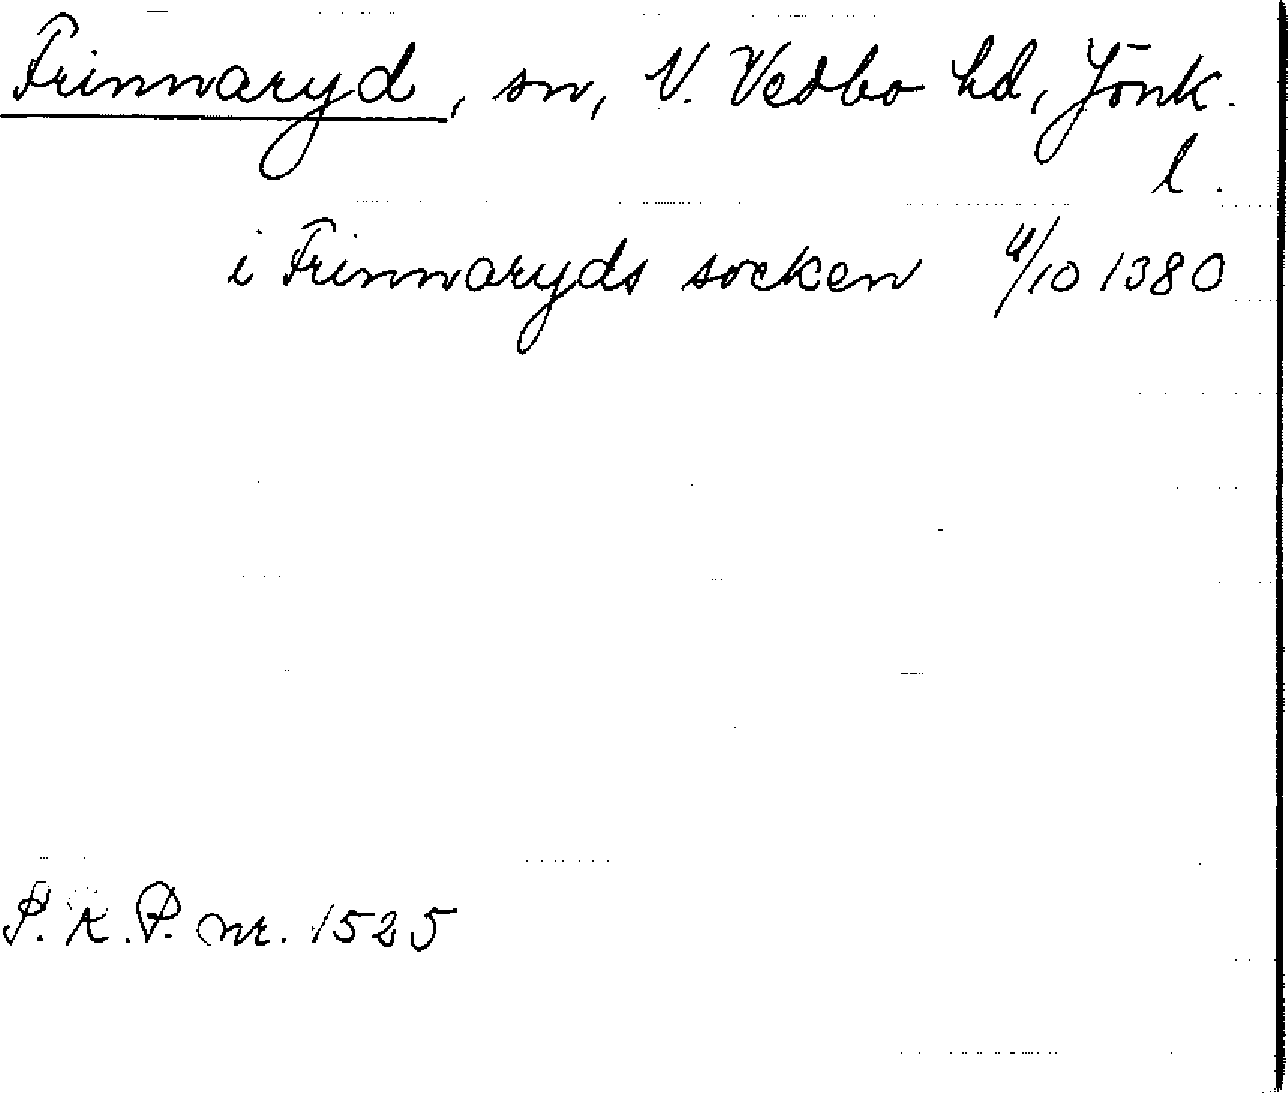 Frinnaryd, sn, V. Vedbo hd, Jönk.
l.
i Frinnaryds socken 4/10 1380
P.K.P. nr. 1525